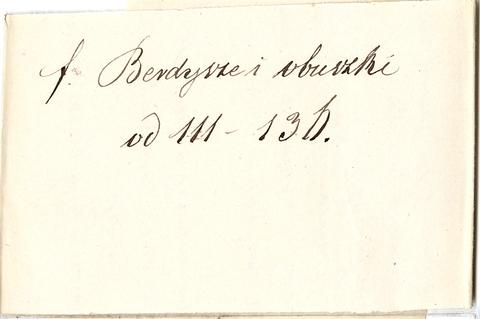 f. Berdysze i obuszki
od 111 - 136.